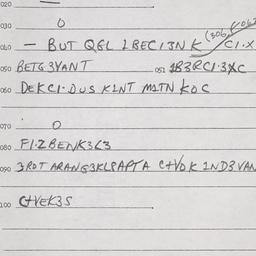 020
030 0
(306 (063
040 — BUT Q6L 1BEC13N K C1.X
050 BETG3YANT 051 1B3RC1.3XC
060 DEKC1.DUS K1NT M1TN KOC
070 0
080 F1.2BENK3C3
090 3ROT ARANG3KL8APTA C+VOK 1ND3VAN
100 C+VEK3S